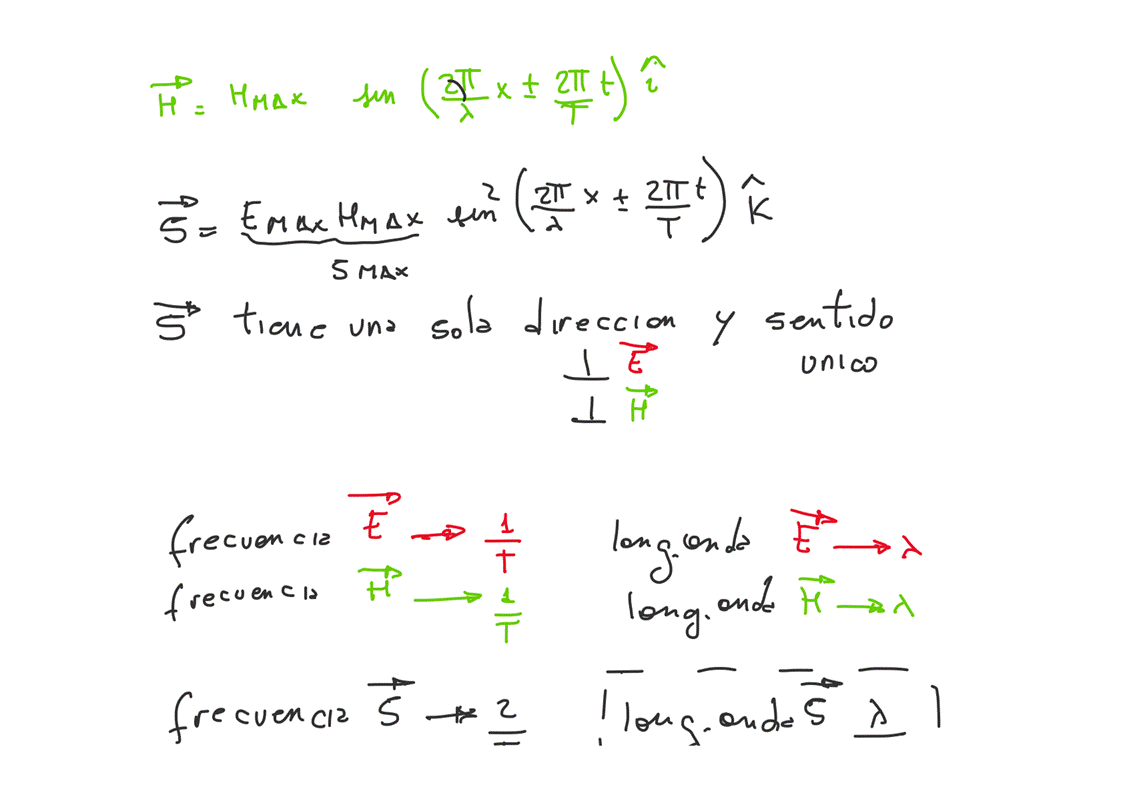 H⃗ = HMAX sin (2π/λ x ± 2π/T t) î
S⃗ = EMAX HMAX sin² (2π/λ x ± 2π/T t) K̂
SMAX
S⃗ tiene una sola direccion y sentido
⊥ E⃗ unico
⊥ H⃗
frecuencia E⃗ → 1/T long. onda E⃗ → λ
frecuencia H⃗ → 1/T long. onda H⃗ → λ
frecuencia S⃗ → 2 long. onda S⃗ λ